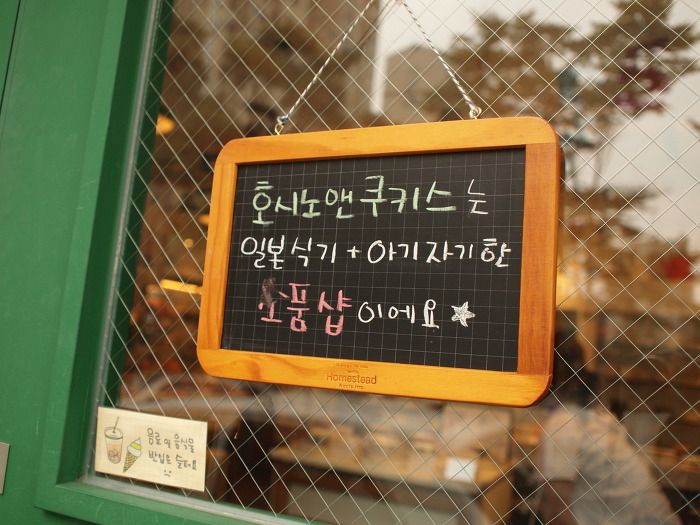 호시노앤쿠키스는
일본식기 + 아기자기한
소품샵이에요
Homestead
음료 및 음식물
반입은 슬퍼요